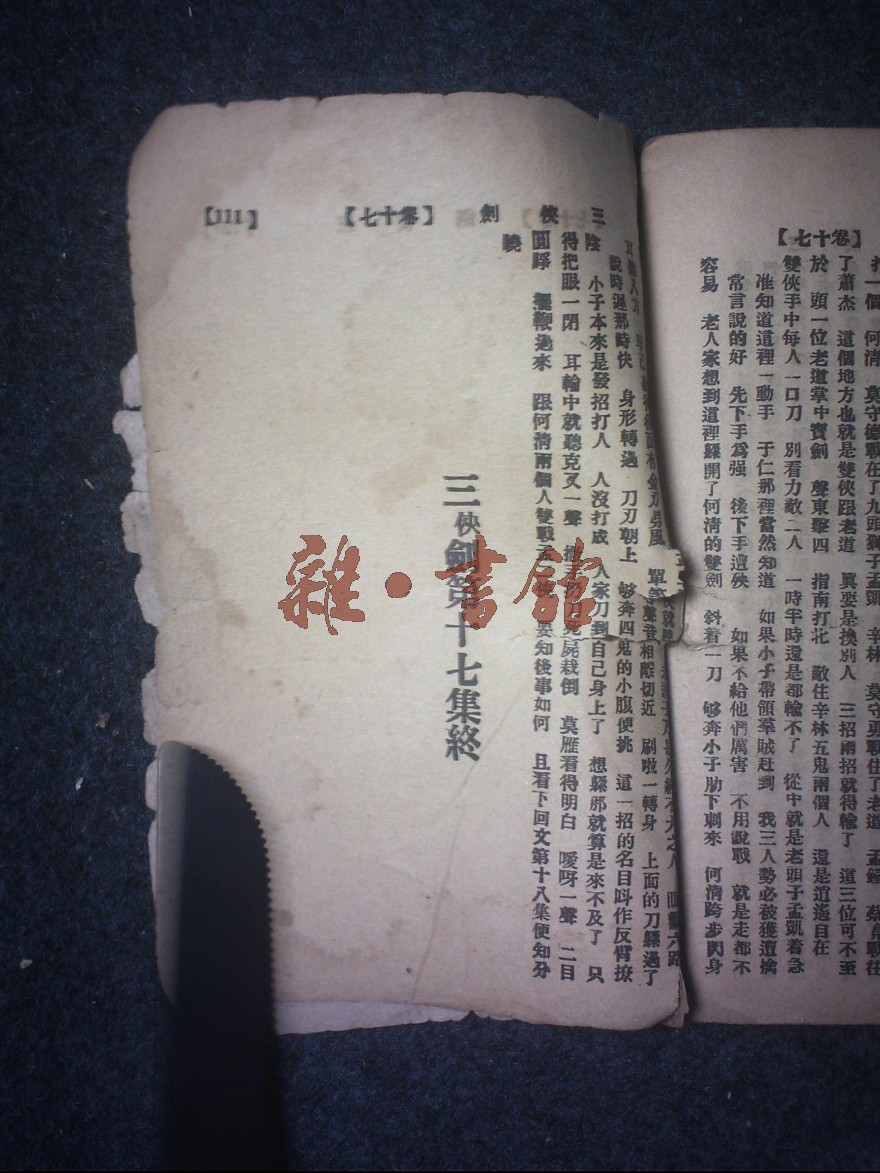 【七十卷】
打一個 何清 莫守德戰在了九頭獅子孟凱 辛林 莫守勇戰住了老道 孟鐃 蔡
了蕭杰 這個地方也就是雙俠跟老道 異要是換別人 三招兩招就得輸了 這三位可不至
於 頭一位老道掌中寶劍 聲東擊四 指南打北 敵住辛林五鬼兩個人 還是逍遙自在
雙俠手中每人一口刀 別看力敵二人 一時半時還是都輸不了 從中就是老頭子孟凱着急
准知道這裡一動手 于仁那裡當然知道 如果小子帶領羣賊赶到 我三人勢必被獲遭擒
常言說的好 先下手爲强 後下手遭殃 如果不給他們厲害 不用說戰 就是走都不
容易 老人家想到這裡躱開了何清的雙劍 斜着一刀 够奔小子肋下刺來 何清跨步閃身
三俠劍 【七十卷】 【111】
耳 八方 金刃劈風 單 聲音相隙切近 刷啦一轉身 上面的刀躱過了
說時遲那時快 身形轉過 刀刃朝上 够奔四鬼的小腹便挑 這一招的名目叫作反臂撩
陰 小子本來是發招打人 人沒打成 人家刀到自己身上了 想躱那就算是來不及了 只
得把眼一閉 耳輪中就聽克叉一聲 死屍栽倒 莫雁看得明白 噯呀一聲 二目
圓睜 擺鞭過來 跟何清兩個人雙戰 要知後事如何 且看下回文第十八集便知分
曉
三俠劍第十七集終
雜·書館